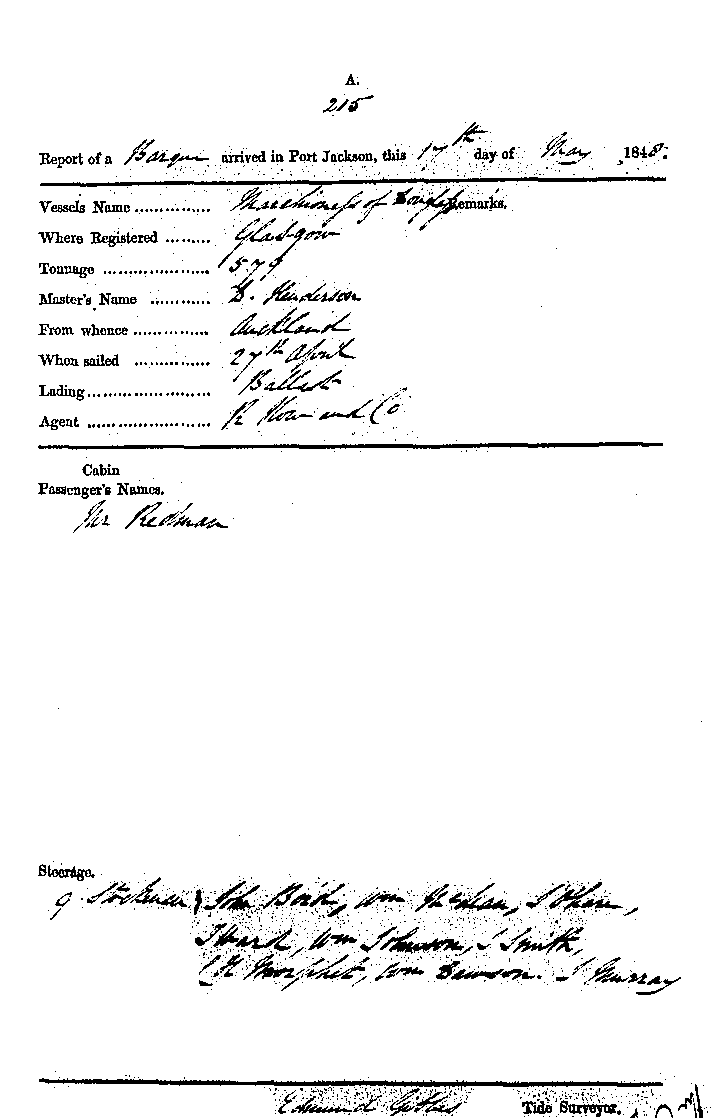 A.
215
Report of a Barque arrived in Port Jackson, this 17th day of May 1848.
Vessels Name .............. Marchioness of Douglas Remarks.
Where Registered ......... Glasgow
Tonnage ..................... 579
Master's Name ............ D. Henderson
From whence ............... Auckland
When sailed ............... 27th April
Lading ........................ Ballast
Agent ........................ R and Co
Cabin
Passenger's Names.
Mr Redman
Steerage.
9 Stockmen } John Bird, Wm
Ward, Wm Johnson, J Smith,
Wm Dawson. J Murray
Edmund Tide Surveyor.